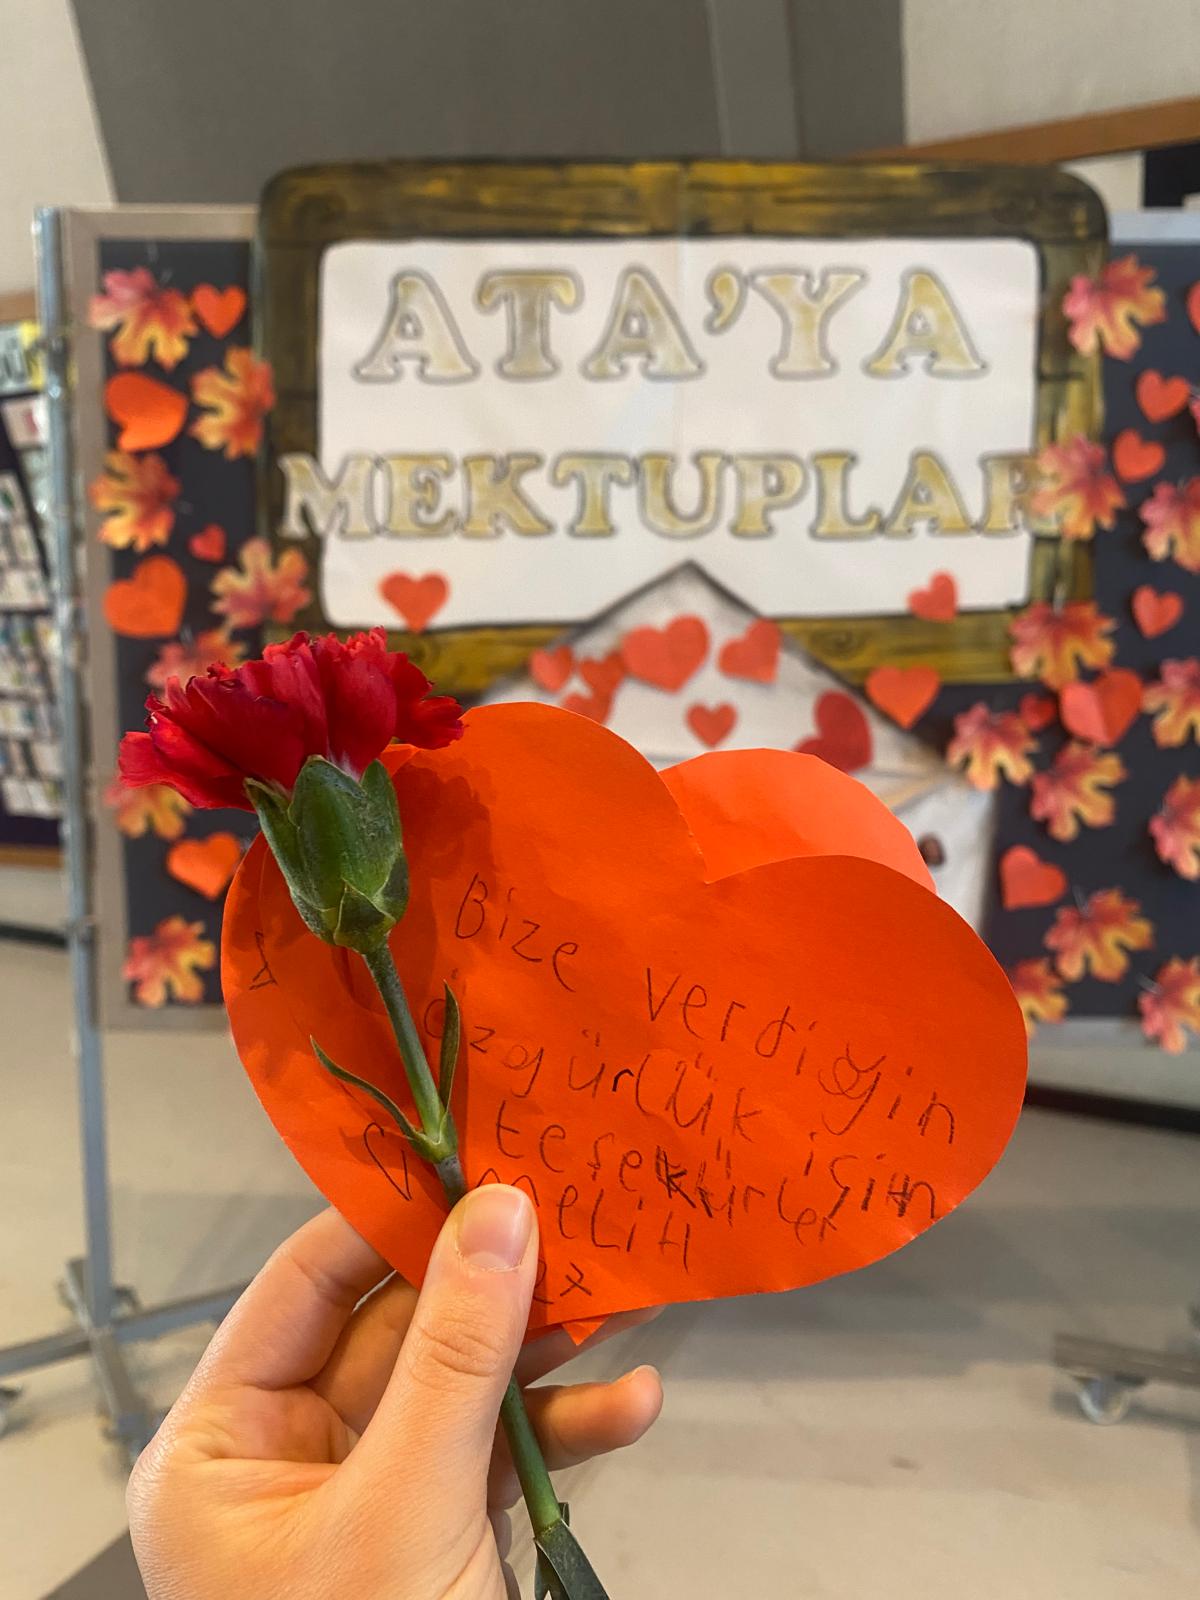 ATA'YA
MEKTUPLAR
Bize verdiğin
özgürlük için
teşekürler
meLiH